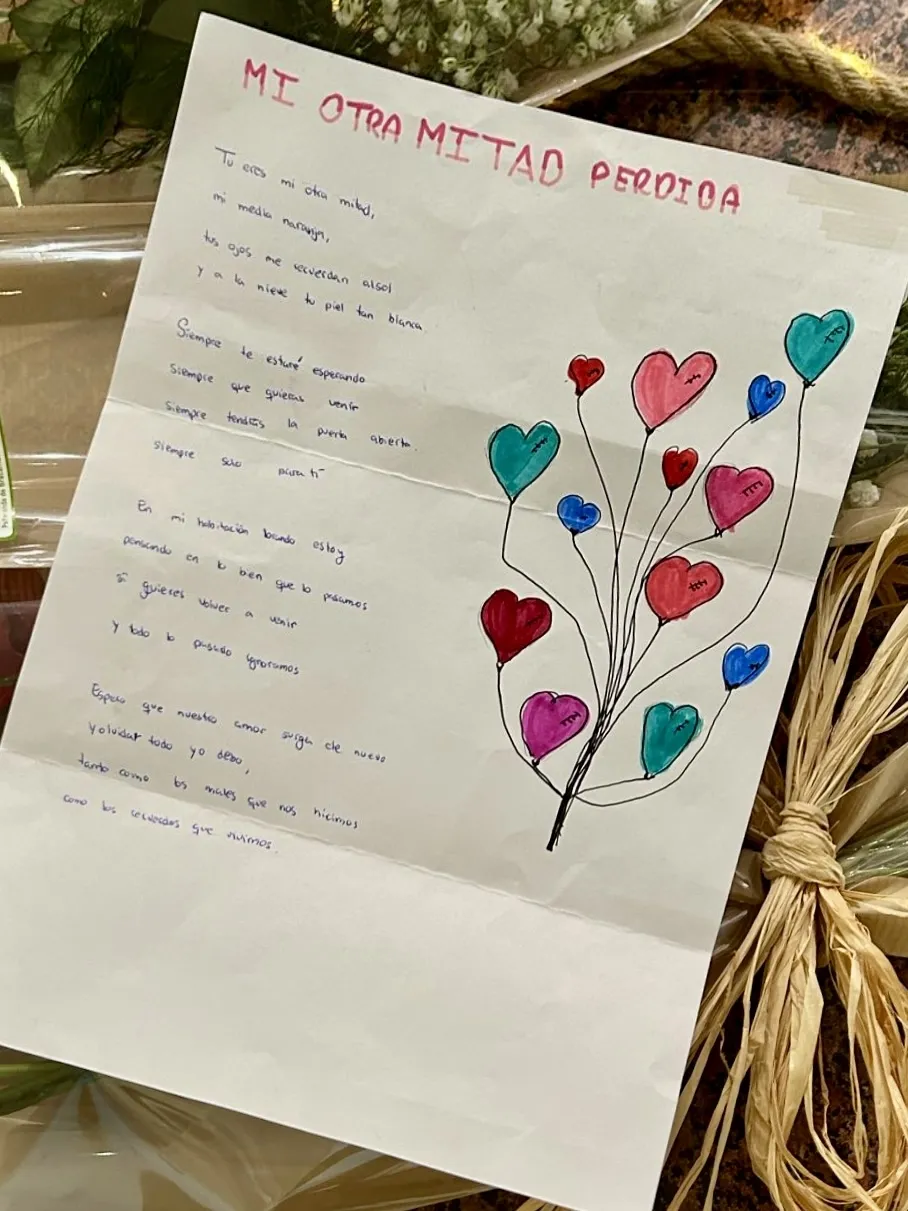 MI OTRA MITAD PERDIDA
Tu eres mi otra mitad,
mi media naranja,
tus ojos me recuerdan al sol
y a la nieve tu piel tan blanca.
Siempre te estaré esperando
siempre que quieras venir
siempre tendrás la puerta abierta.
siempre solo para tí
En mi habitación llorando estoy
pensando en lo bien que lo pasamos
si quieres volver a venir
y todo lo pasado ignoramos
Espero que nuestro amor surga de nuevo
y olvidar todo yo debo,
tanto como los males que nos hicimos
como los recuerdos que vivimos.